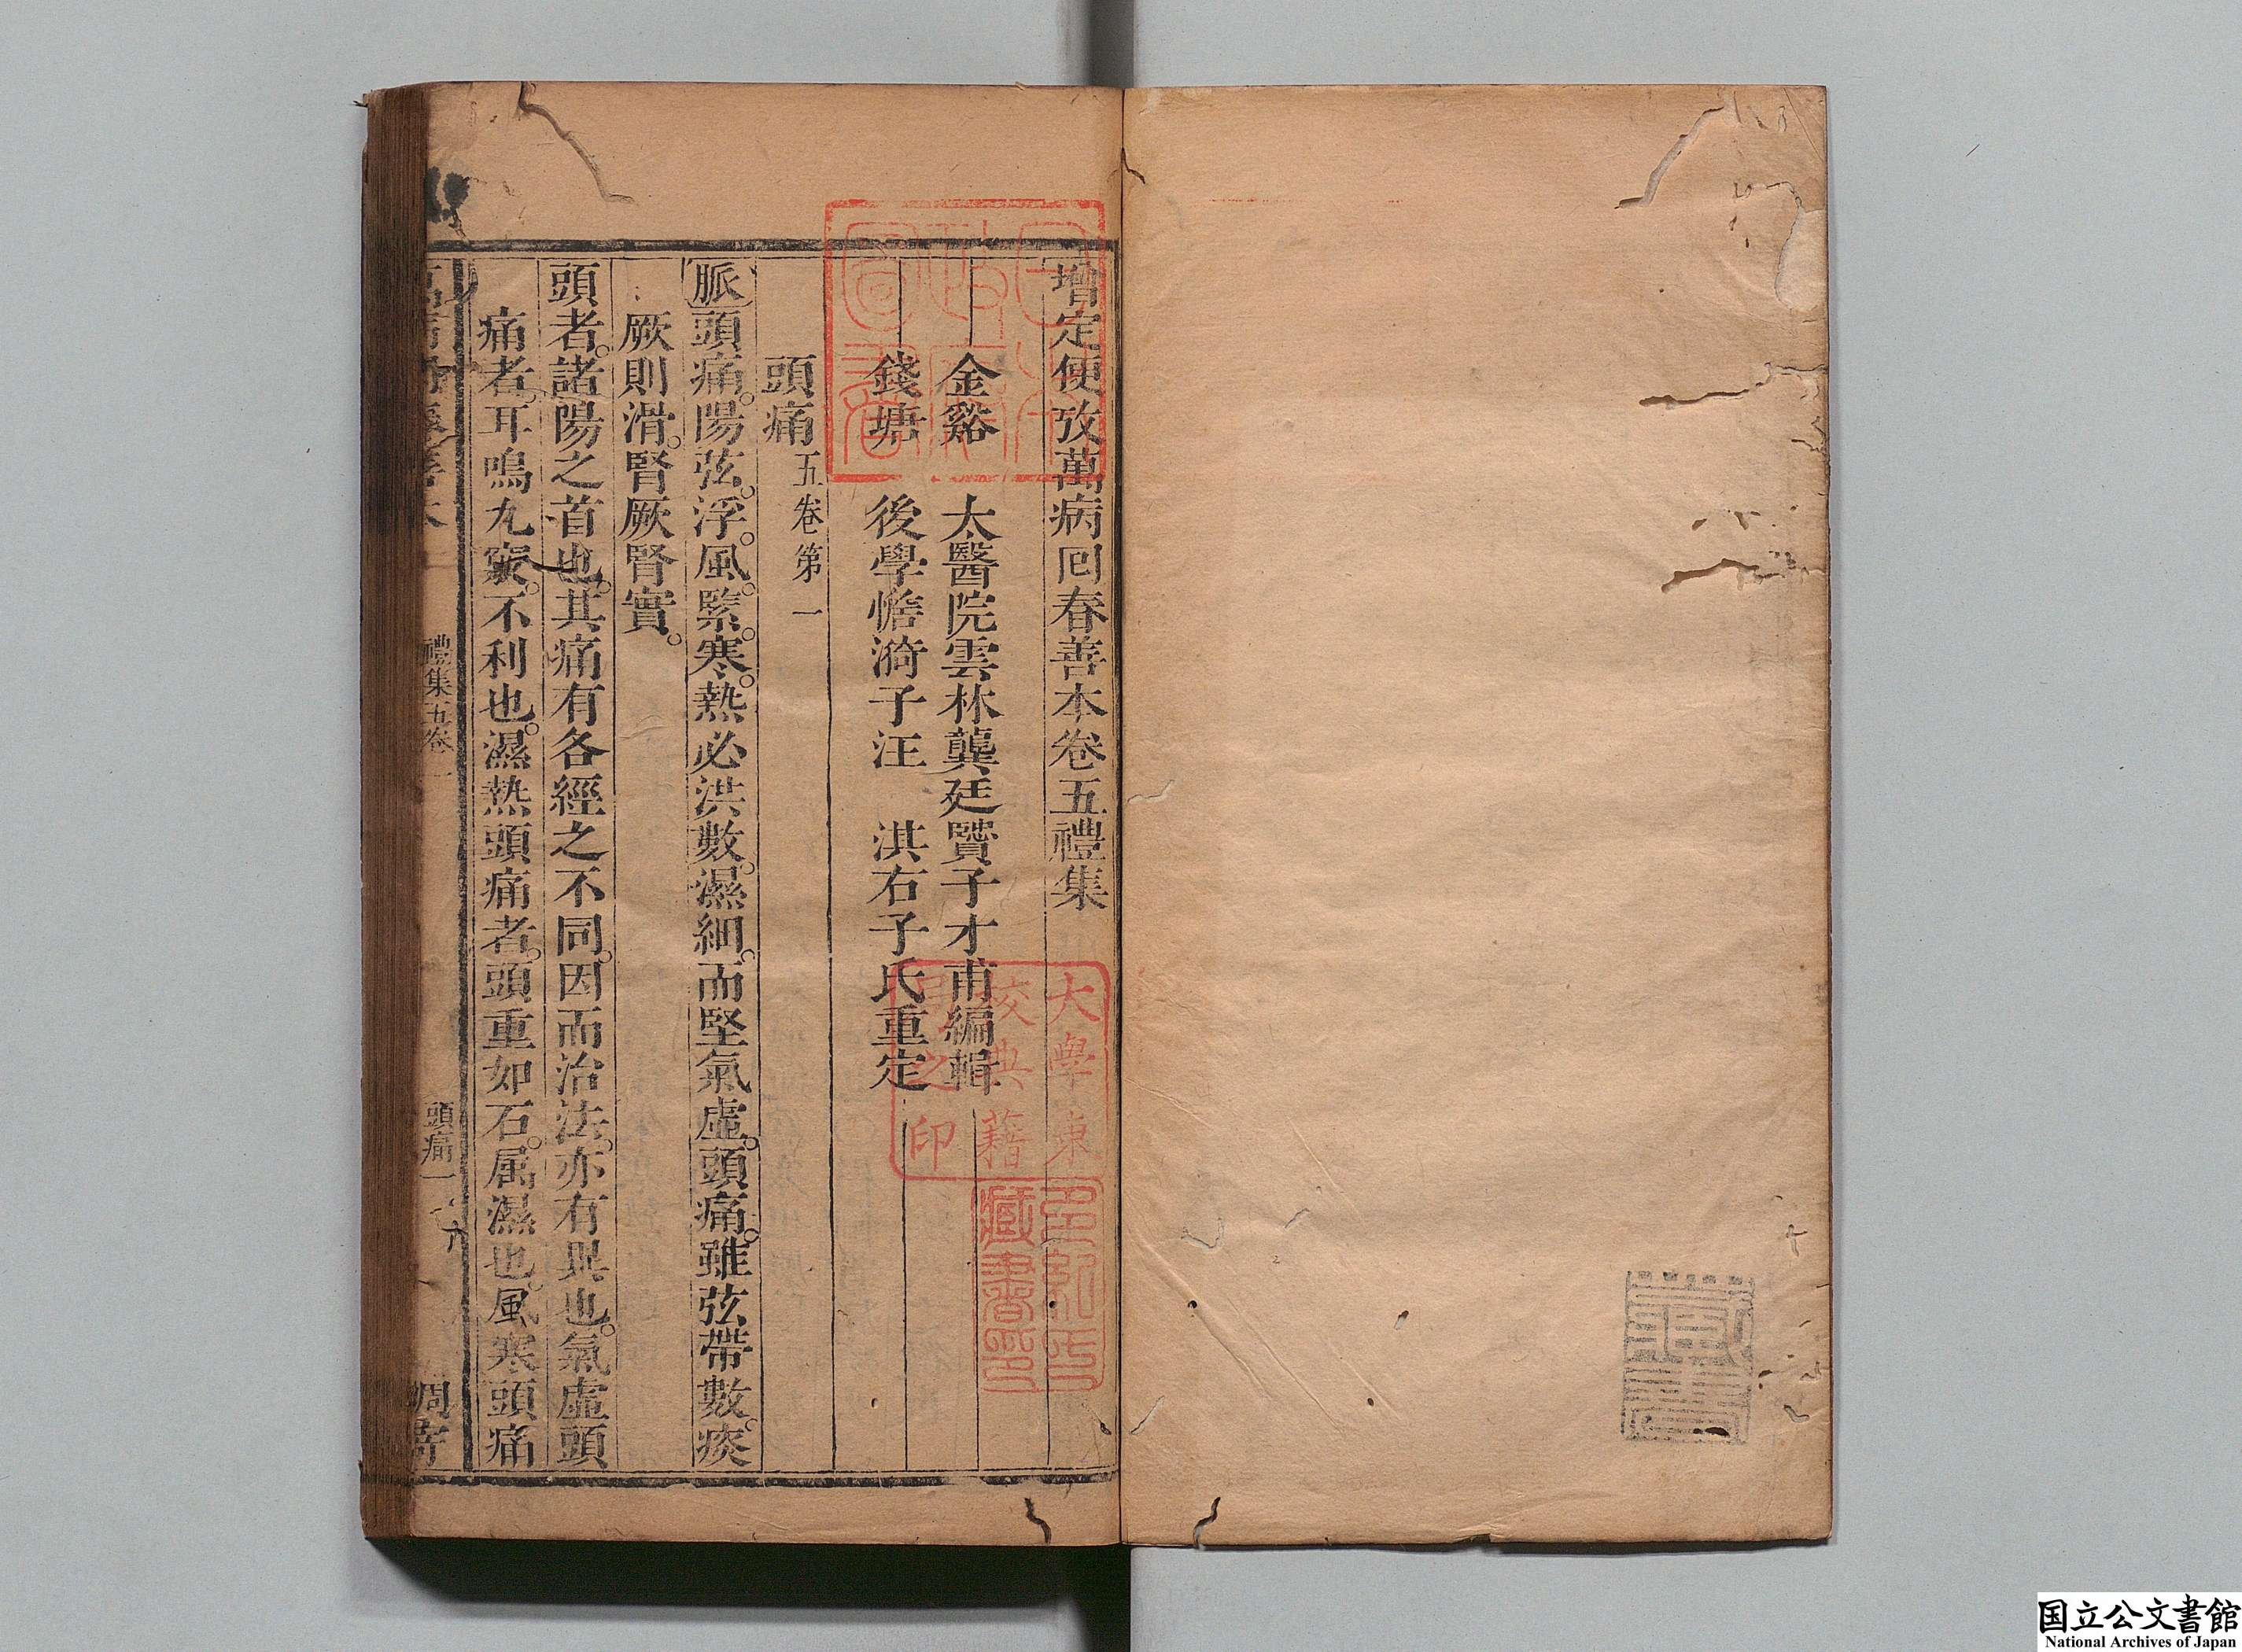 增定便攷萬病回春善本卷五禮集
金谿　太醫院雲林龔廷賢子才甫編輯
錢塘　後學憺漪子汪　淇右子氏重定
頭痛 五卷第一
脈頭痛。陽弦。浮。風。緊。寒。熱必洪數。濕細。而堅氣虛。頭痛。雖弦帶數。痰
厥則滑。腎厥腎實。
頭者。諸陽之首也。其痛有各經之不同。因而治法。亦有異也。氣虛頭
痛者。耳鳴九竅。不利也。濕熱頭痛者。頭重如石。属濕也。風寒頭痛
禮集五卷
頭痛一
大學東
校典籍
之印
藏書印
藏書
国立公文書館
National Archives of Japan